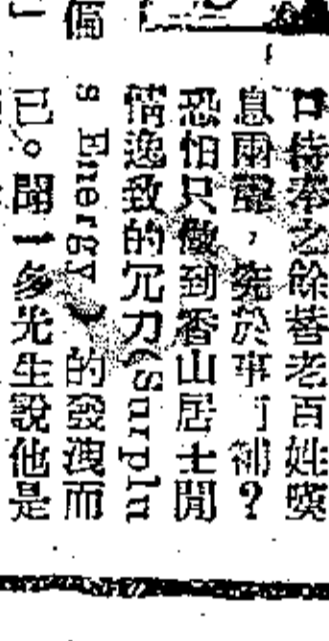 口侍奉之餘替老百姓嘆
息兩聲，究於事何補？
恐怕只做到香山居士閒
情逸致的冗力(Surplu
s Energy)的發洩而
已。聞一多先生說他是